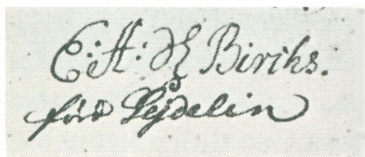 E: A: Birihs.
född Sejdelin